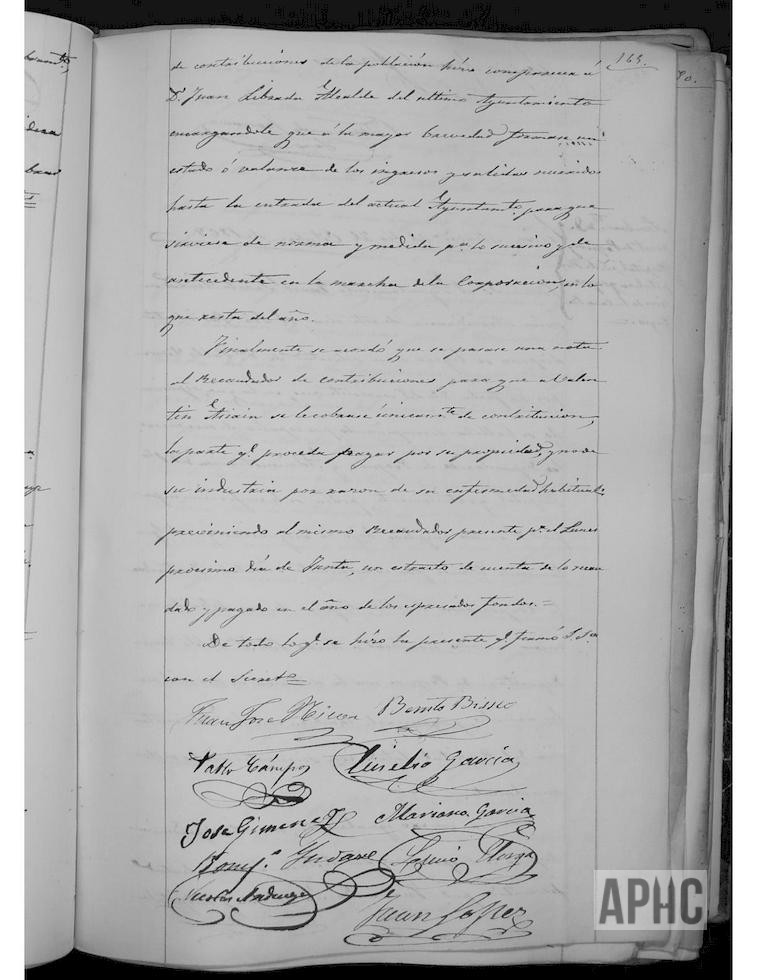 165.
de contribuciones de la poblacion hizo comparecer á
D. Juan Librada Alcalde del ultimo Ayuntamiento
encargandole que á la mayor brevedad formase un
estado ó valance de los ingresos y salidas
hasta la entrada del actual Ayuntamto. para que
sirviese de norma y medida pa. lo sucesivo y de
antecedente en la marcha de la Corporacion, en lo
que resta del año.
Finalmente se acordó que se pasase una nota
al Recaudador de contribuciones para que a Valen
tin se le cobrase únicamte. de contribucion,
la parte q. proceda pagar por su propiedad, y no de
su industria por razon de su enfermedad habitual
previniendo al mismo Recaudador presente pa. el Lunes
procsimo dia de Junta, un estracto de cuenta de lo recau
dado y pagado en el año de los espresados fondos.=
De todo lo q. se hizo la presente q. firmó S. Sa.
con el Secreto=
Juan Jose Benito
Pablo Cámpos Aurelio Garcia
Jose Gimenez Mariano Garcia
Juan Lopez
APHC